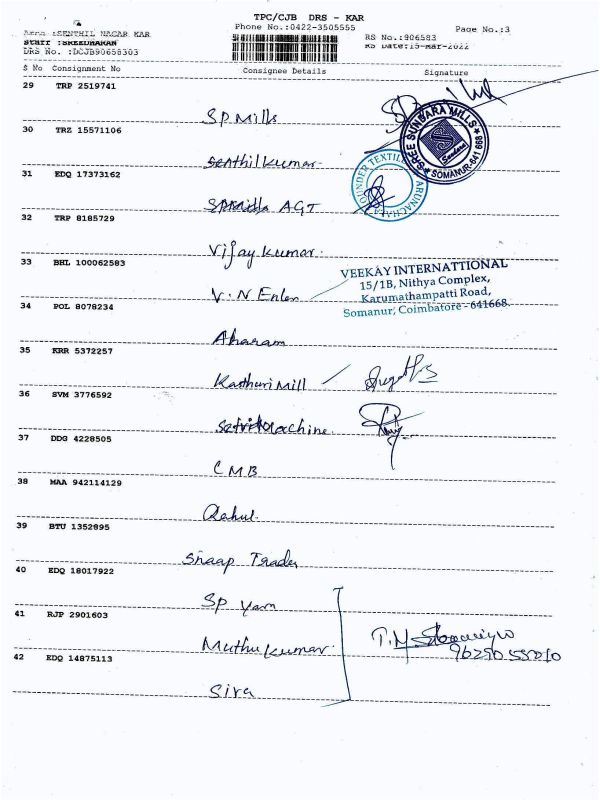 TPC/CJB DRS - KAR
Phone No.:0422-3505555
Page No.:3
Area :SENTHIL NAGAR KAR
Staff :SREEDHARAN
DRS No. :DCJB90658303
RS No.:906583
RS Date:15-Mar-2022
S No Consignment No Consignee Details Signature
29 TRP 2519741
S.P. Mills
30 TRZ 15571106
Senthil kumar
31 EDQ 17373162
AGT
32 TRP 8185729
Vijay kumar
33 BHL 100062583
V.N
34 POL 8078234
35 KRR 5372257
Kasthuri Mill
36 SVM 3776592
Machine
37 DDG 4228505
CMB
38 MAA 942114129
Rahul
39 BTU 1352895
Snaap Trader
40 EDQ 18017922
SP Yarn
41 RJP 2901603
Muthu kumar
42 EDQ 14875113
Siva
SREE SUNDARA MILLS
SOMANUR-641 668
VEEKAY INTERNATTIONAL
15/1B, Nithya Complex,
Karumathampatti Road,
Somanur, Coimbatore - 641668.
T.M